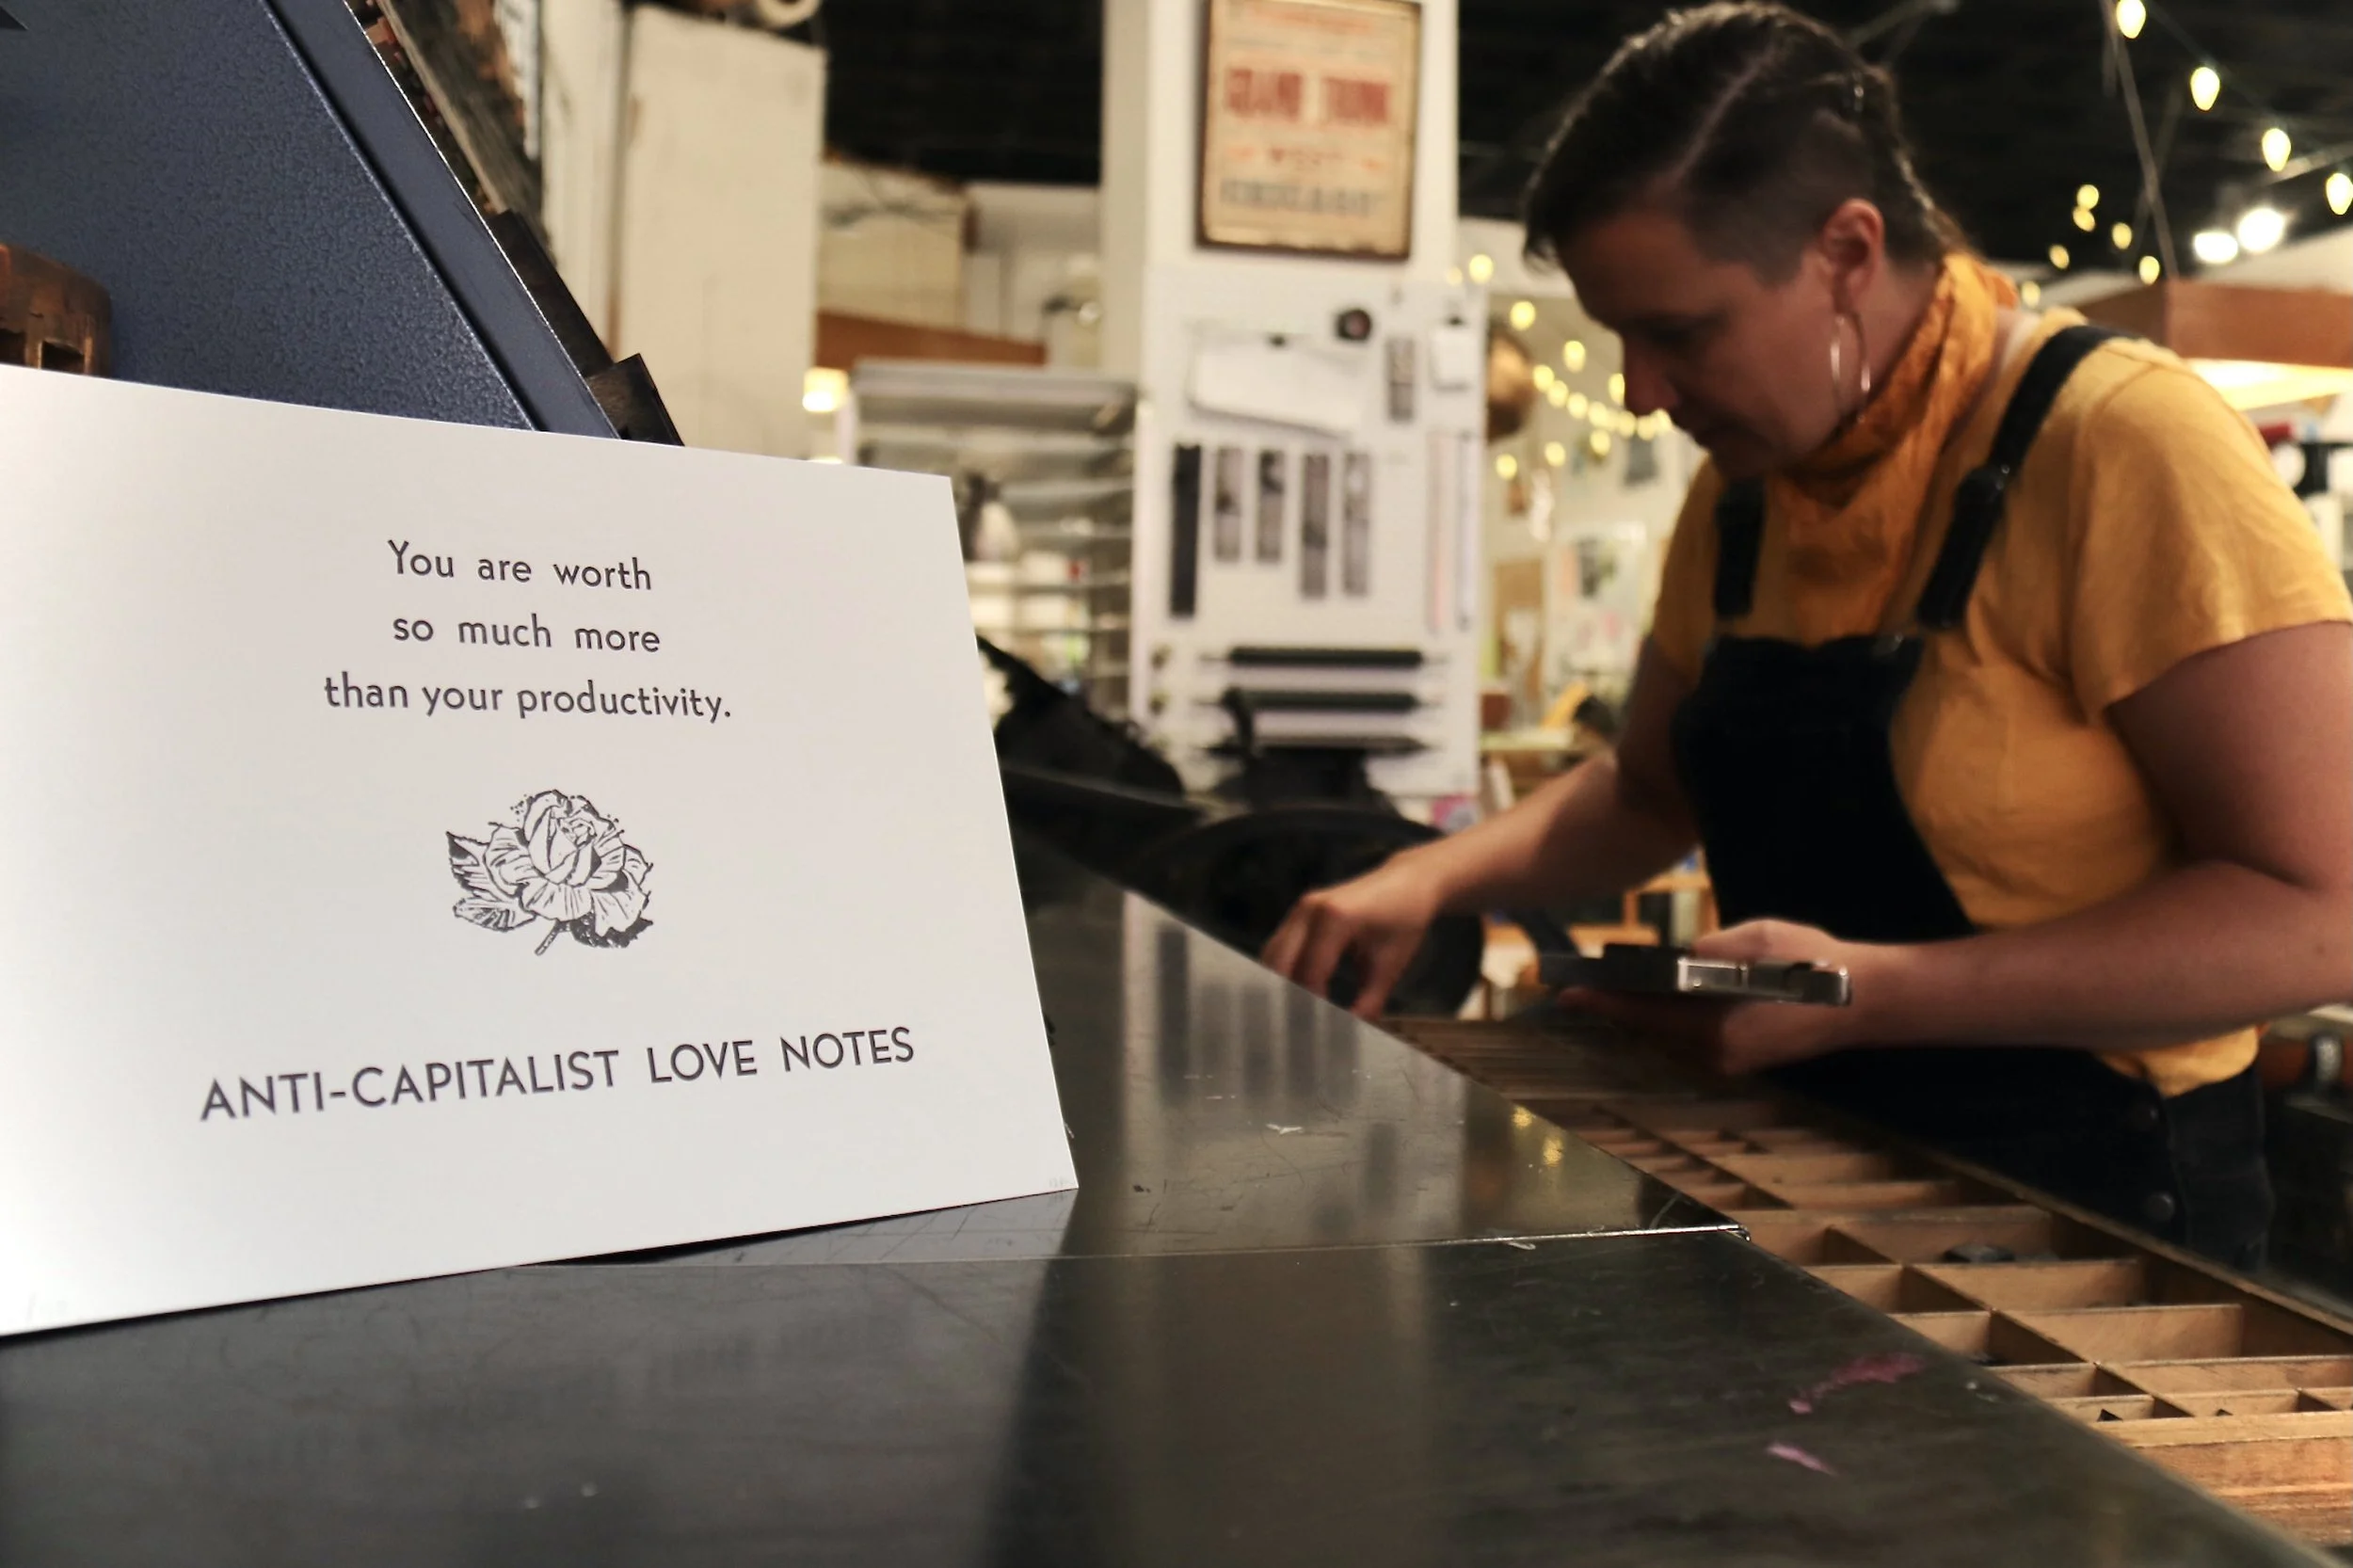 You are worth
so much more
than your productivity.
ANTI-CAPITALIST LOVE NOTES
GRAND TRUNK